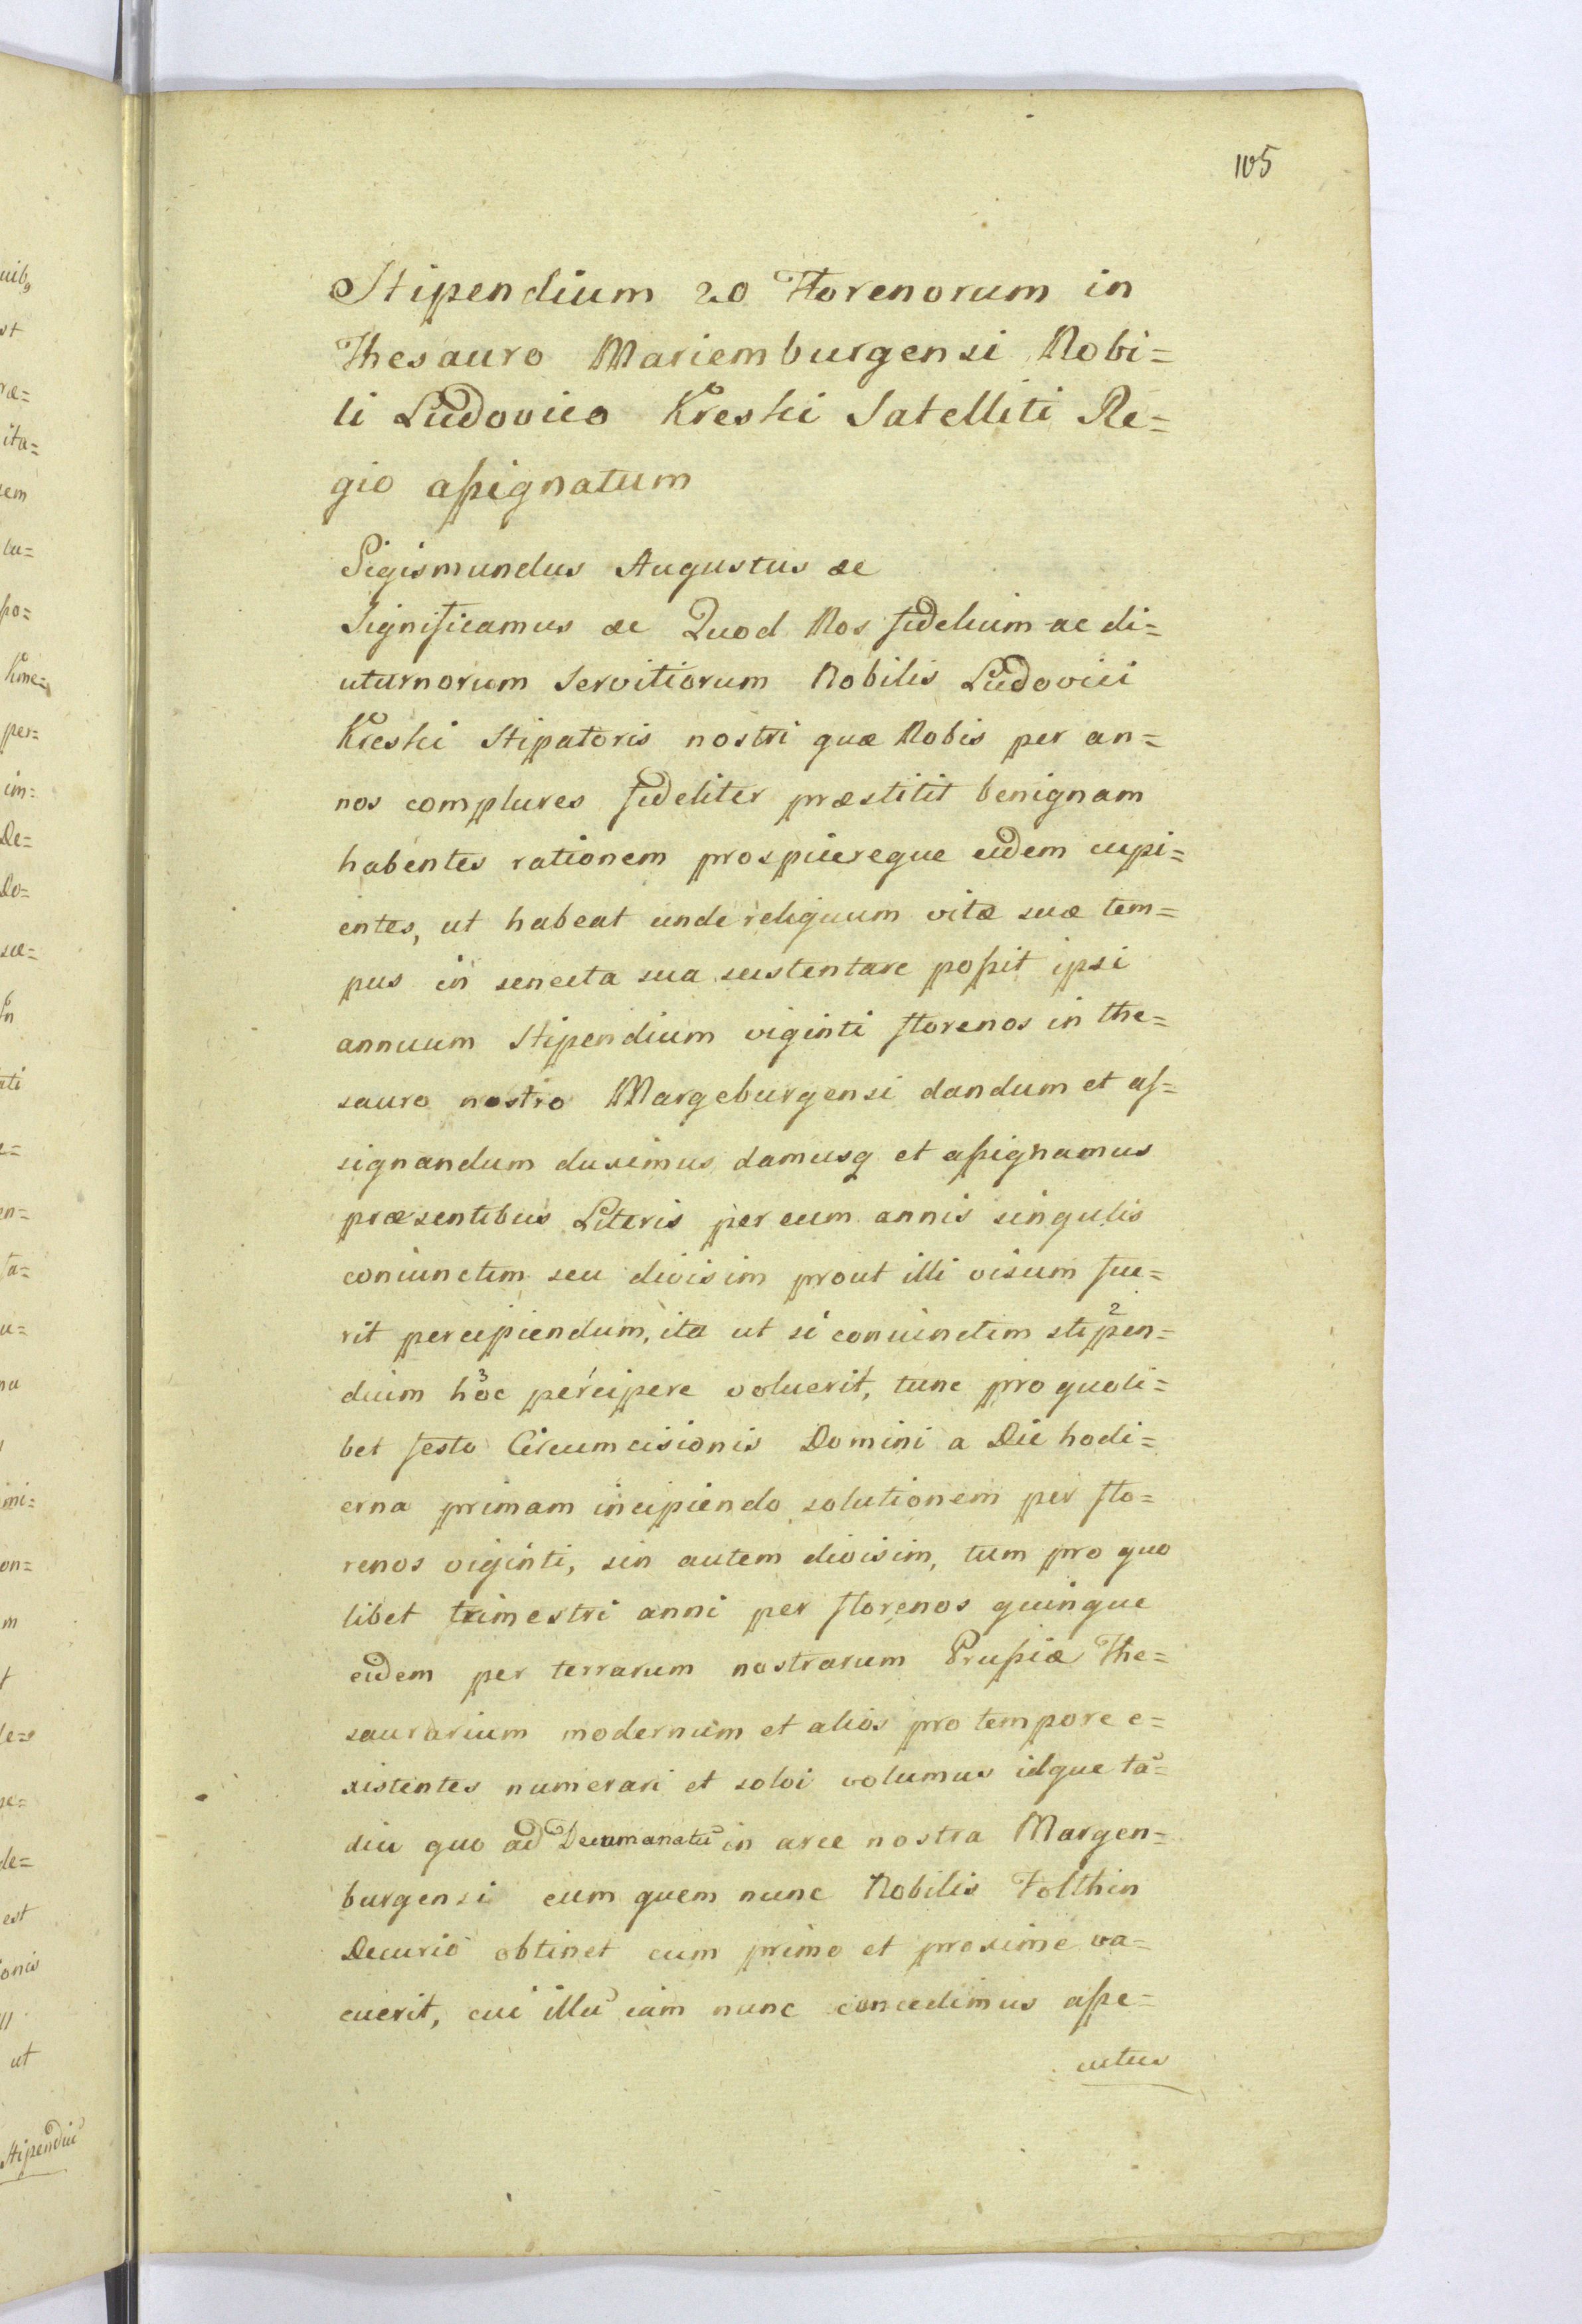 105
Stipendium 20 Florenorum in
Thesauro Mariemburgensi Nobi=
li Ludovico Kreski Satelliti Re=
gio aßignatum
Sigismundus Augustus &c
Significamus &c Quod Nos fidelium ac di=
uturnorum servitiorum Nobilis Ludovici
Kreski Stipatoris nostri quæ Nobis per an=
nos complures fideliter præstitit benignam
habentes rationem prospicereque eidem cupi=
entes, ut habeat unde reliquum vitæ suæ tem=
pus in senecta sua sustentare poßit ipsi
annuum Stipendium viginti florenos in the=
sauro nostro Margeburgensi dandum et as=
signandum duximus, damusq et aßignamus
præsentibus Literis per eum annis singulis
coniunctim seu divisim prout illi visum fue=
rit percipiendum, ita ut si coniunctim stipen=
2
dium hoc percipere voluerit, tunc pro quoli=
3
bet festo Circumcisionis Domini a Die hodi=
erna primam incipiendo solutionem per flo=
renos viginti, sin autem divisim, tum pro quo
libet trimestri anni per florenos quinque
eidem per terrarum nostrarum Prußiæ The=
saurarium modernum et alios pro tempore e=
xistentes numerari et solvi volumus idque ta᷉=
diu quo ad Decumanatu᷉ in arce nostra Margen=
burgensi eum quem nunc Nobilis Folthin
Decurio obtinet cum primo et proxime va=
cuerit, cui illu᷉ iam nunc concedimus aße=
cutus
uib9
st
ræ=
ita=
em
lu=
po=
Kme=
per=
im=
De=
Do=
suæ=
ati
en=
ta=
u=
na
mi=
on=
m
de=
est
ionis
ut
Stipendiu᷉